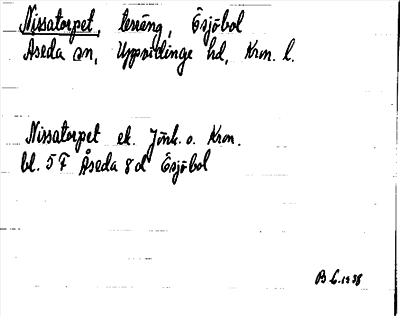 Nissatorpet, terräng, Ösjöbol
Åseda sn, Uppvidinge hd, Kron. l.
Nissatorpet ek. Jönk. o. Kron.
bl. 5 F Åseda 8 d Ösjöbol
B 6.1938